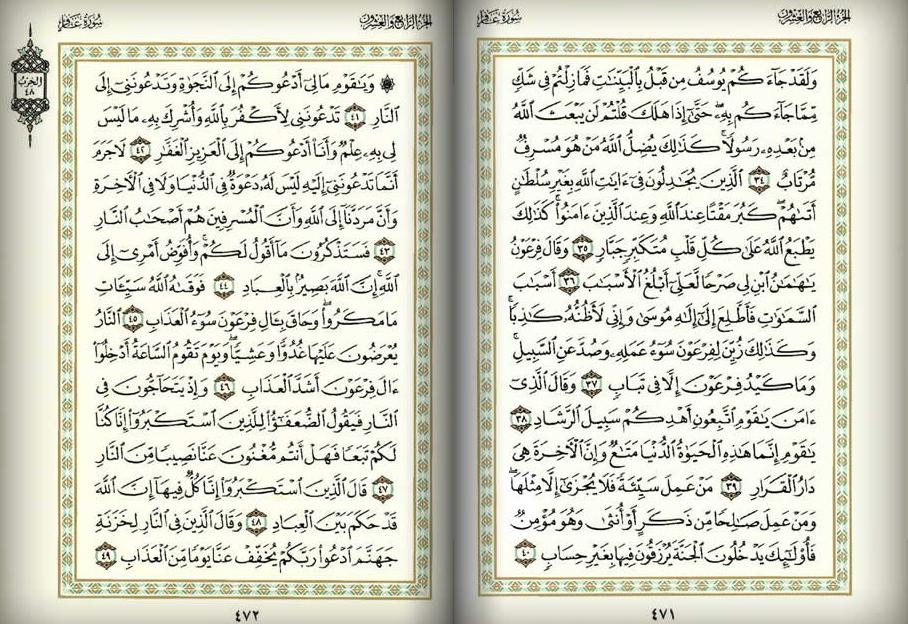 الجزء الرابع والعشرون
سورة غافر
وَلَقَدْ جَآءَكُمْ يُوسُفُ مِن قَبْلُ بِٱلْبَيِّنَٰتِ فَمَا زِلْتُمْ فِى شَكٍّ
مِّمَّا جَآءَكُم بِهِۦ حَتَّىٰٓ إِذَا هَلَكَ قُلْتُمْ لَن يَبْعَثَ ٱللَّهُ
مِنۢ بَعْدِهِۦ رَسُولًا كَذَٰلِكَ يُضِلُّ ٱللَّهُ مَنْ هُوَ مُسْرِفٌ
مُّرْتَابٌ ٣٤ ٱلَّذِينَ يُجَٰدِلُونَ فِىٓ ءَايَٰتِ ٱللَّهِ بِغَيْرِ سُلْطَٰنٍ
أَتَىٰهُمْ كَبُرَ مَقْتًا عِندَ ٱللَّهِ وَعِندَ ٱلَّذِينَ ءَامَنُوا۟ كَذَٰلِكَ
يَطْبَعُ ٱللَّهُ عَلَىٰ كُلِّ قَلْبِ مُتَكَبِّرٍ جَبَّارٍ ٣٥ وَقَالَ فِرْعَوْنُ
يَٰهَٰمَٰنُ ٱبْنِ لِى صَرْحًا لَّعَلِّىٓ أَبْلُغُ ٱلْأَسْبَٰبَ ٣٦ أَسْبَٰبَ
ٱلسَّمَٰوَٰتِ فَأَطَّلِعَ إِلَىٰٓ إِلَٰهِ مُوسَىٰ وَإِنِّى لَأَظُنُّهُۥ كَٰذِبًا
وَكَذَٰلِكَ زُيِّنَ لِفِرْعَوْنَ سُوٓءُ عَمَلِهِۦ وَصُدَّ عَنِ ٱلسَّبِيلِ
وَمَا كَيْدُ فِرْعَوْنَ إِلَّا فِى تَبَابٍ ٣٧ وَقَالَ ٱلَّذِىٓ
ءَامَنَ يَٰقَوْمِ ٱتَّبِعُونِ أَهْدِكُمْ سَبِيلَ ٱلرَّشَادِ ٣٨
يَٰقَوْمِ إِنَّمَا هَٰذِهِ ٱلْحَيَوٰةُ ٱلدُّنْيَا مَتَٰعٌ وَإِنَّ ٱلْءَاخِرَةَ هِىَ
دَارُ ٱلْقَرَارِ ٣٩ مَنْ عَمِلَ سَيِّئَةً فَلَا يُجْزَىٰٓ إِلَّا مِثْلَهَا
وَمَنْ عَمِلَ صَٰلِحًا مِّن ذَكَرٍ أَوْ أُنثَىٰ وَهُوَ مُؤْمِنٌ
فَأُو۟لَٰٓئِكَ يَدْخُلُونَ ٱلْجَنَّةَ يُرْزَقُونَ فِيهَا بِغَيْرِ حِسَابٍ ٤٠
٤٧١
الجزء الرابع والعشرون
سورة غافر
الحزب
٤٨
۞ وَيَٰقَوْمِ مَا لِىٓ أَدْعُوكُمْ إِلَى ٱلنَّجَوٰةِ وَتَدْعُونَنِىٓ إِلَى
ٱلنَّارِ ٤١ تَدْعُونَنِى لِأَكْفُرَ بِٱللَّهِ وَأُشْرِكَ بِهِۦ مَا لَيْسَ
لِى بِهِۦ عِلْمٌ وَأَنَا۠ أَدْعُوكُمْ إِلَى ٱلْعَزِيزِ ٱلْغَفَّٰرِ ٤٢ لَا جَرَمَ
أَنَّمَا تَدْعُونَنِىٓ إِلَيْهِ لَيْسَ لَهُۥ دَعْوَةٌ فِى ٱلدُّنْيَا وَلَا فِى ٱلْءَاخِرَةِ
وَأَنَّ مَرَدَّنَآ إِلَى ٱللَّهِ وَأَنَّ ٱلْمُسْرِفِينَ هُمْ أَصْحَٰبُ ٱلنَّارِ
٤٣ فَسَتَذْكُرُونَ مَآ أَقُولُ لَكُمْ وَأُفَوِّضُ أَمْرِىٓ إِلَى
ٱللَّهِ إِنَّ ٱللَّهَ بَصِيرٌۢ بِٱلْعِبَادِ ٤٤ فَوَقَىٰهُ ٱللَّهُ سَيِّـَٔاتِ
مَا مَكَرُوا۟ وَحَاقَ بِـَٔالِ فِرْعَوْنَ سُوٓءُ ٱلْعَذَابِ ٤٥ ٱلنَّارُ
يُعْرَضُونَ عَلَيْهَا غُدُوًّا وَعَشِيًّا وَيَوْمَ تَقُومُ ٱلسَّاعَةُ أَدْخِلُوٓا۟
ءَالَ فِرْعَوْنَ أَشَدَّ ٱلْعَذَابِ ٤٦ وَإِذْ يَتَحَآجُّونَ فِى
ٱلنَّارِ فَيَقُولُ ٱلضُّعَفَٰٓؤُا۟ لِلَّذِينَ ٱسْتَكْبَرُوٓا۟ إِنَّا كُنَّا
لَكُمْ تَبَعًا فَهَلْ أَنتُم مُّغْنُونَ عَنَّا نَصِيبًا مِّنَ ٱلنَّارِ
٤٧ قَالَ ٱلَّذِينَ ٱسْتَكْبَرُوٓا۟ إِنَّا كُلٌّ فِيهَآ إِنَّ ٱللَّهَ
قَدْ حَكَمَ بَيْنَ ٱلْعِبَادِ ٤٨ وَقَالَ ٱلَّذِينَ فِى ٱلنَّارِ لِخَزَنَةِ
جَهَنَّمَ ٱدْعُوا۟ رَبَّكُمْ يُخَفِّفْ عَنَّا يَوْمًا مِّنَ ٱلْعَذَابِ ٤٩
٤٧٢